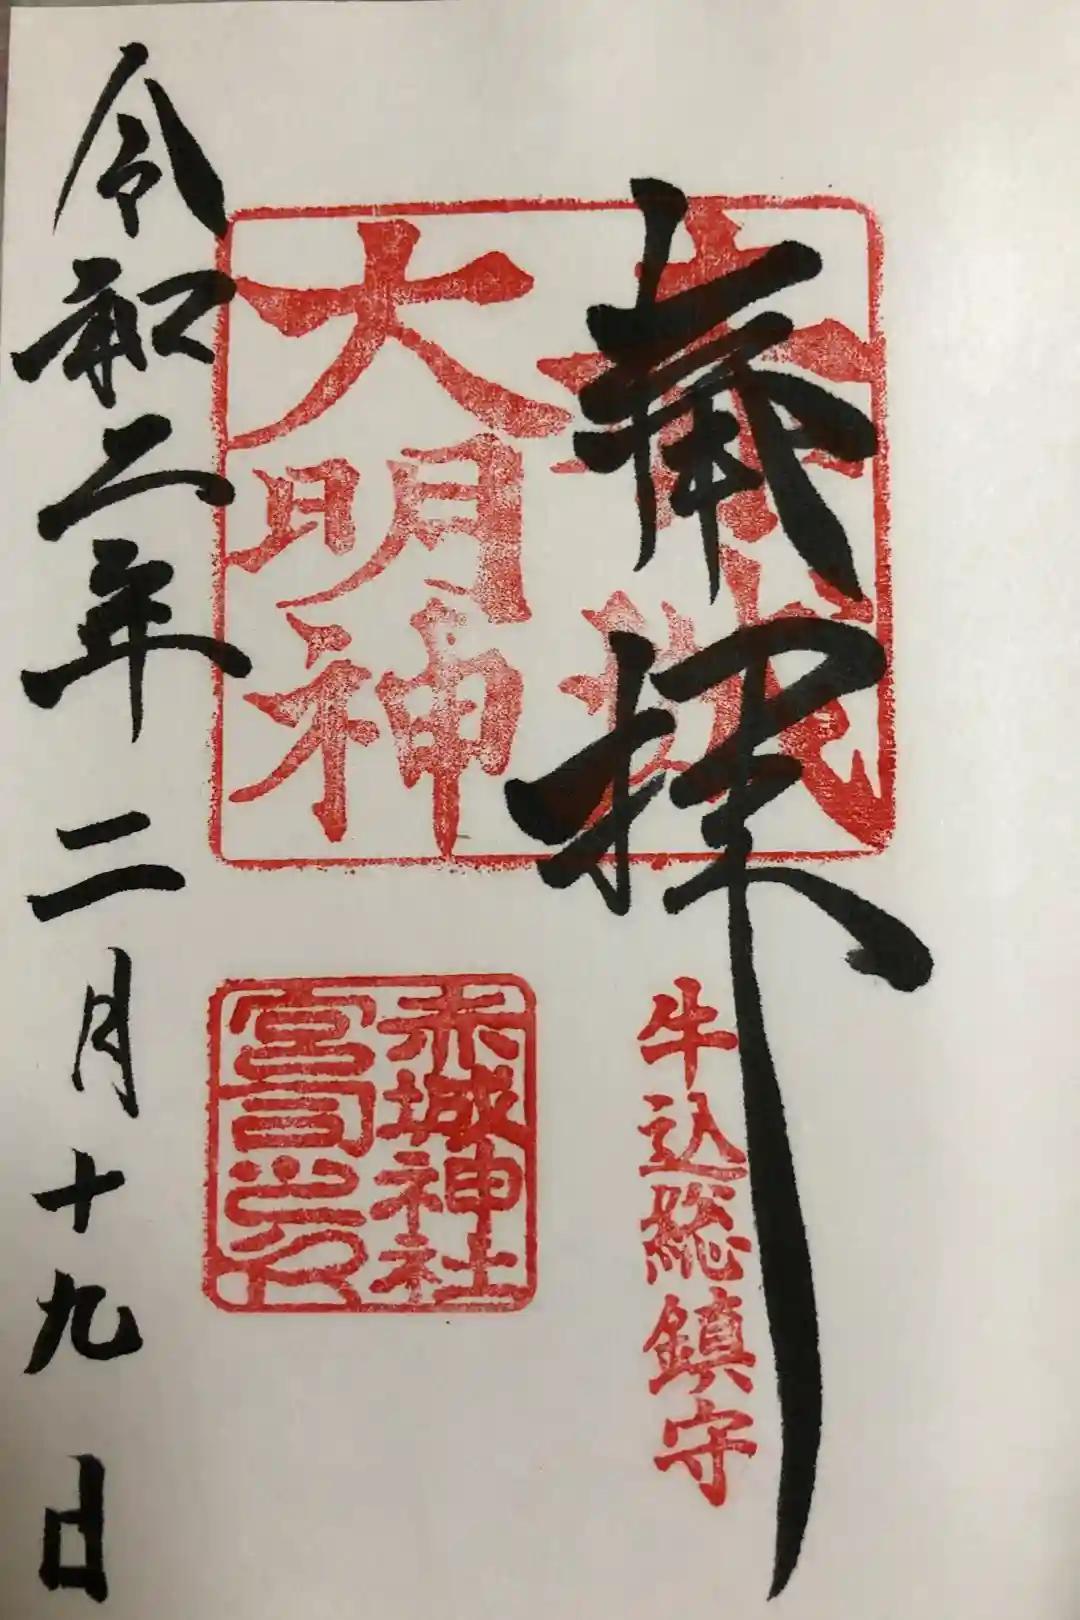 奉拝
赤城
大明神
牛込総鎮守
赤城神社
宮司之印
令和二年二月十九日